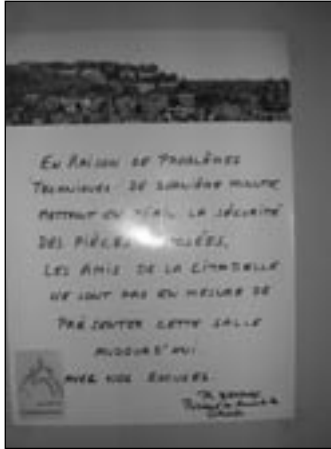 EN RAISON DE PROBLÈMES
TECHNIQUES DE DERNIÈRE MINUTE
METTANT EN PÉRIL LA SÉCURITÉ
DES PIÈCES
LES AMIS DE LA CITADELLE
NE SONT PAS EN MESURE DE
PRÉSENTER CETTE SALLE
AUJOURD'HUI
AVEC NOS EXCUSES